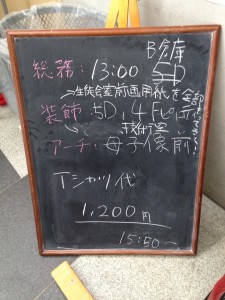 B倉庫
総務:13:00 5D
生徒会室前画用紙を全部
装飾:5D, 4F
アーチ:母子像前
Tシャツ代
1,200円
15:50〜